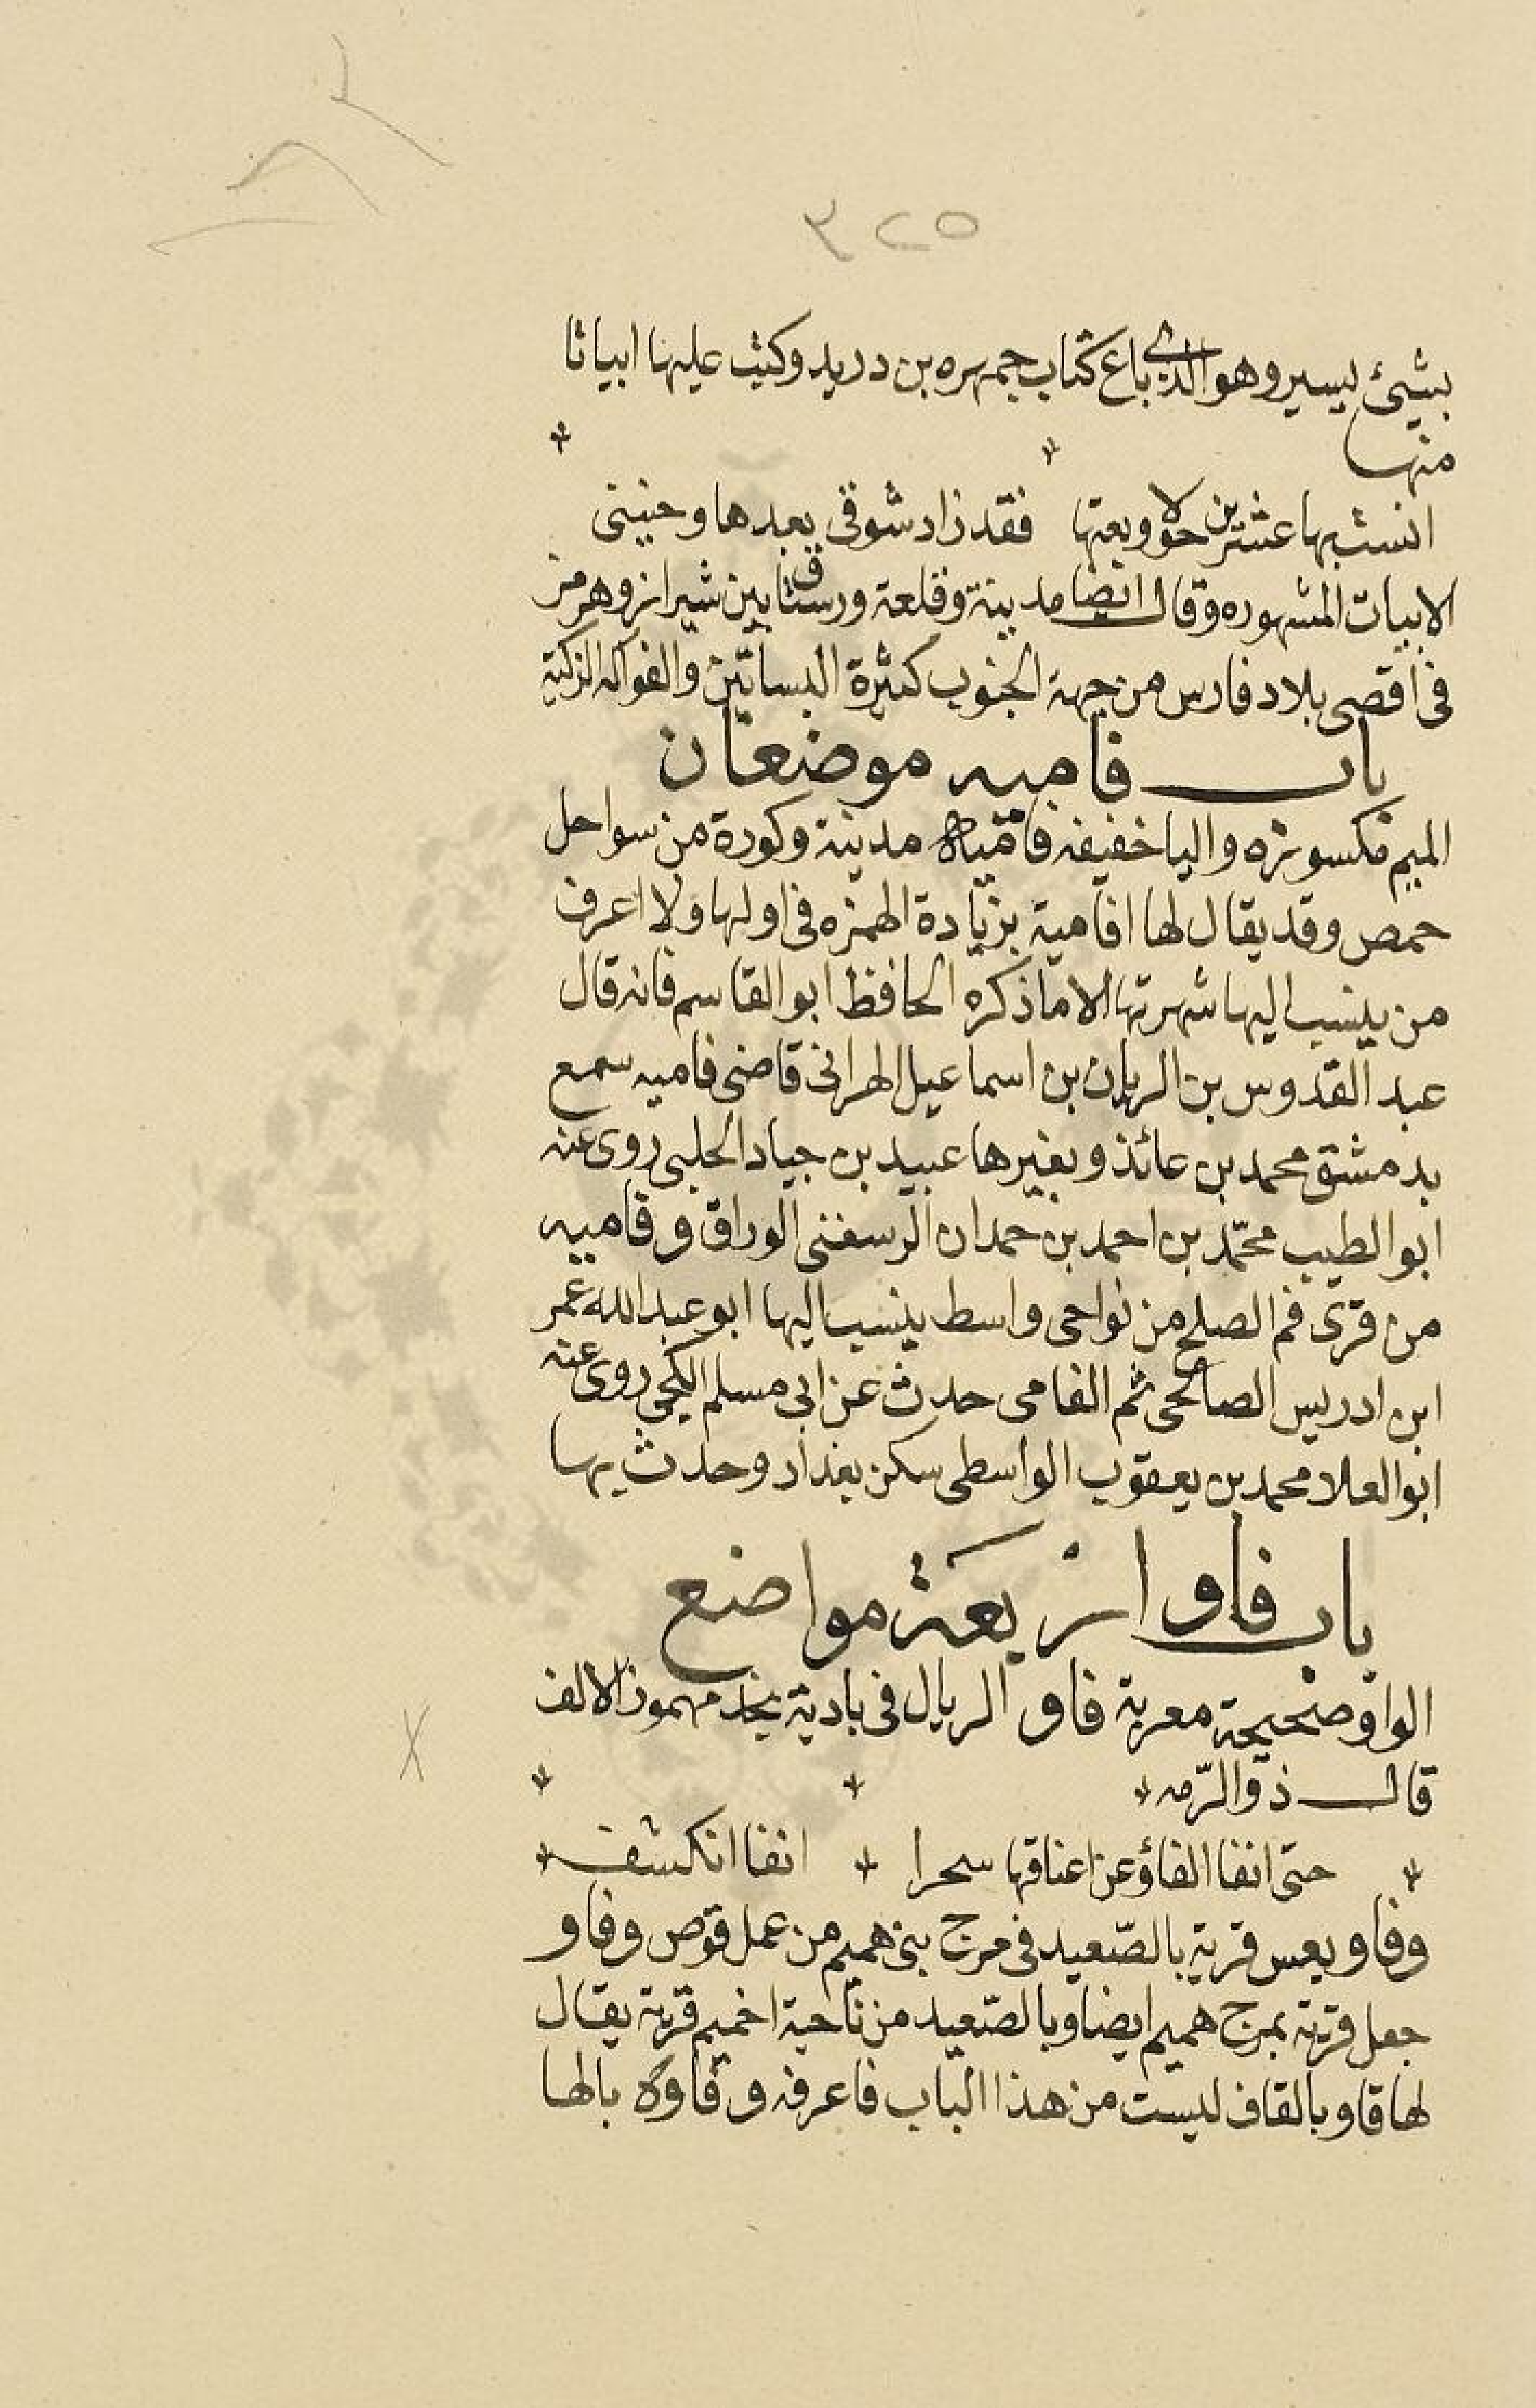 ٣٢٥
بشيئ يسير وهو الذي باع كتاب جمهره بن دريد وكتب عليها ابياتا
منها
انست بها عشرين حولا وبعتها فقد زاد شوقي بعدها وحنيني
الابيات المشهوره وقال ايضا مدينة وقلعة ورستاق بين شيراز وهرمز
في اقصى بلاد فارس من جهة الجنوب كثيرة البساتين والفواكه الزكية
باب فاميه موضعان
الميم مكسورة واليا خفيفه فامياه مدينة وكورة من سواحل
حمص وقد يقال لها افامية بزيادة الهمزه في اولها ولا اعرف
من ينسب اليها شهرتها الا ما ذكره الحافظ ابو القاسم فانه قال
عبد القدوس بن الريان بن اسماعيل الهراني قاضي فاميه سمع
بدمشق محمد بن عائذ وبغيرها عبيد بن جياد الحلبي روى عنه
ابو الطيب محمّد بن احمد بن حمدان الرسغني الوراق وفاميه
من قرى فم الصلح من نواحى واسط ينسب اليها ابو عبد الله عمر
ابن ادريس الصالحى ثم الفامى حدث عن ابى مسلم الكجى روى عنه
ابو العلا محمد بن يعقوب الواسطى سكن بغداد وحدث بها
باب فاو اربعة مواضع
الواو صحيحة معربة فاو الريال في بادية مهموز الالف
قال ذو الرّمه
حتى انفا الفاؤ عن اعناقها سحرا انفا انكشف
وفاو يعس قرية بالصّعيد في مرج بنى هميم من عمل قوص وفاو
جعل قرية بمرج هميم ايضا وبالصّعيد من ناحية اخميم قرية يقال
لها قاو بالقاف ليست من هذا الباب فاعرفه وفاوه بالها